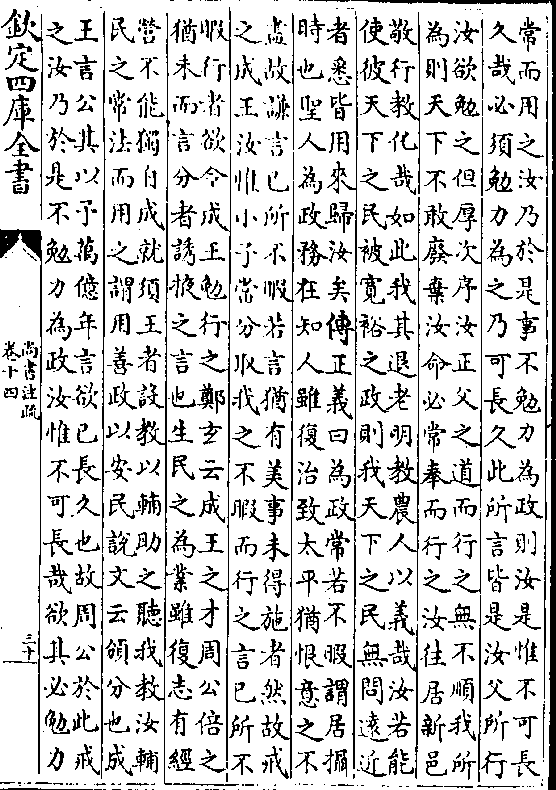 常而用之汝乃於是事不勉力為政則汝是惟不可長
久哉必須勉力為之乃可長久此所言皆是汝父所行
汝欲勉之但厚次序汝正父之道而行之無不順我所
為則天下不敢廢棄汝命必常奉而行之汝往居新邑
敬行教化哉如此我其退老明教農人以義哉汝若能
使彼天下之民被寬裕之政則我天下之民無問遠近
者悉皆用來歸汝矣傳正義曰為政常若不暇謂居攝
時也聖人為政務在知人雖復治致太平猶恨意之不
盡故謙言已所不暇若言猶有美事未得施者然故戒
之成王汝惟小子當分取我之不暇而行之言已所不
暇行者欲令成王勉行之鄭玄云成王之才周公倍之
猶未而言分者誘掖之言也生民之為業雖復志有經
營不能獨自成就須王者設教以輔助之聽我教汝輔
民之常法而用之謂用善政以安民說文云頒分也成
王言公其以予萬億年言欲已長久也故周公於此戒
之汝乃於是不勉力為政汝惟不可長哉欲其必勉力
欽定四庫全書
尚書注疏
卷十四
三十一